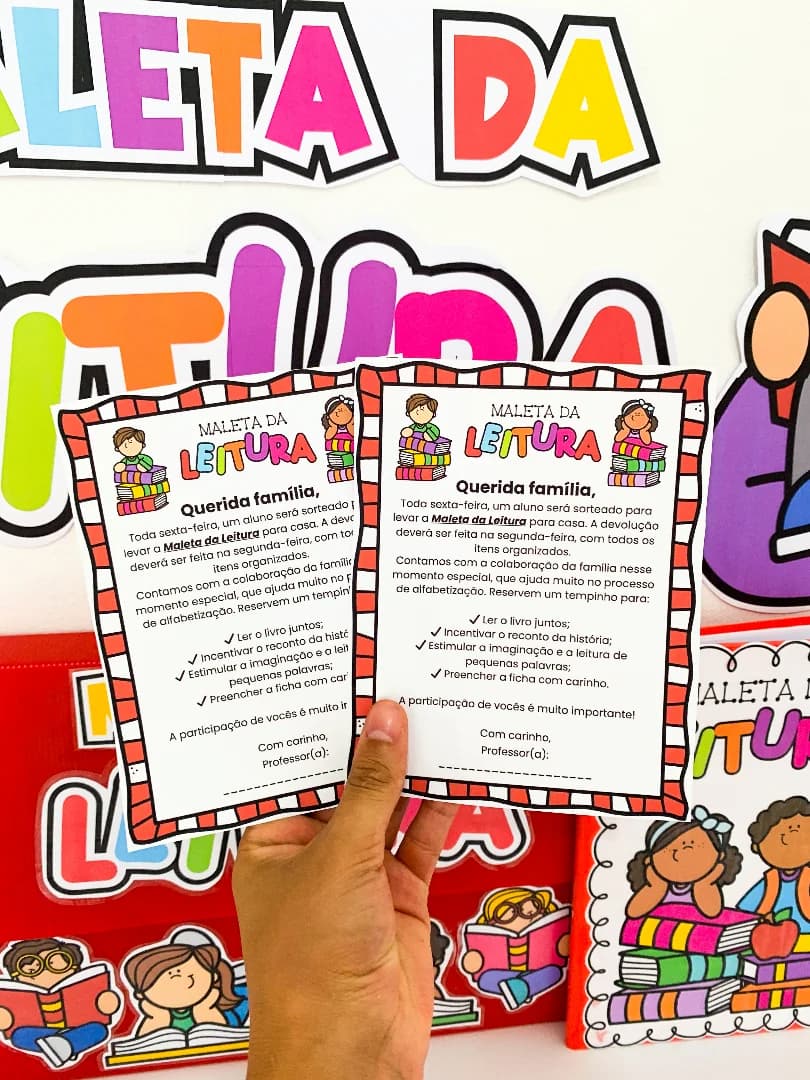 ALETA DA
ITURA
MALETA DA
LEITURA
Querida família,
Toda sexta-feira, um aluno será sorteado
levar a Maleta da Leitura para casa. A devo
deverá ser feita na segunda-feira, com to
itens organizados.
Contamos com a colaboração da famíli
momento especial, que ajuda muito no
de alfabetização. Reservem um tempin
✓ Ler o livro juntos;
✓ Incentivar o reconto da histó
✓ Estimular a imaginação e a leit
pequenas palavras;
✓ Preencher a ficha com car
A participação de vocês é muito i
Com carinho,
Professor(a):
MALETA DA
LEITURA
Querida família,
Toda sexta-feira, um aluno será sorteado para
levar a Maleta da Leitura para casa. A devolução
deverá ser feita na segunda-feira, com todos os
itens organizados.
Contamos com a colaboração da família nesse
momento especial, que ajuda muito no processo
de alfabetização. Reservem um tempinho para:
✓ Ler o livro juntos;
✓ Incentivar o reconto da história;
✓ Estimular a imaginação e a leitura de
pequenas palavras;
✓ Preencher a ficha com carinho.
A participação de vocês é muito importante!
Com carinho,
Professor(a):
ALETA
ITUR